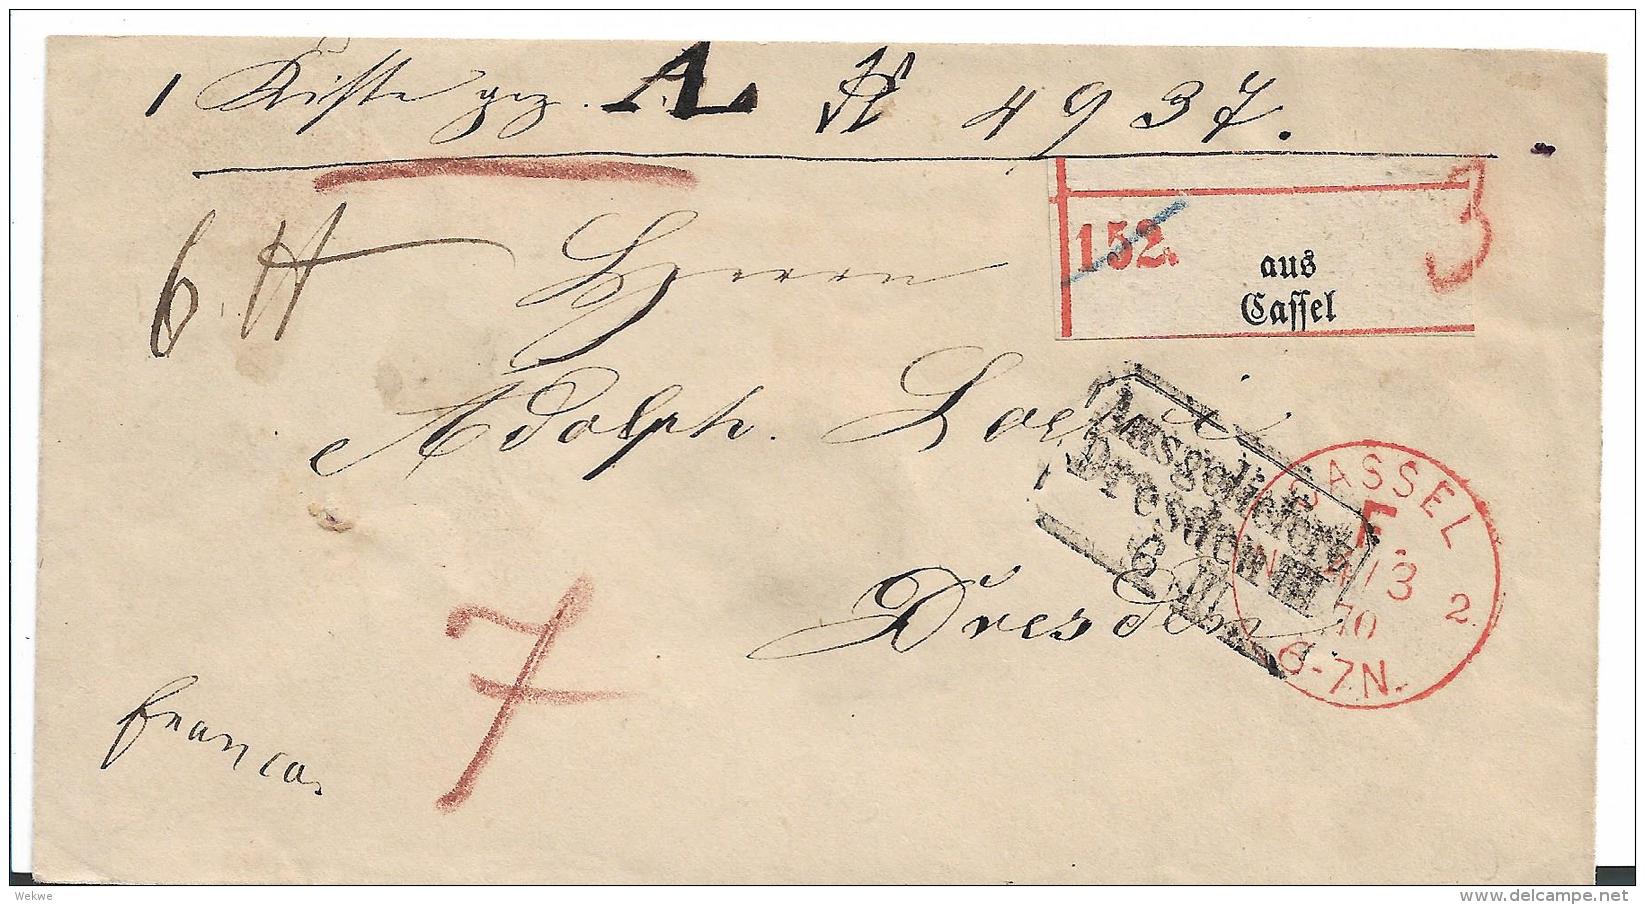 1 Kiste gez. AL № 4937.
152.
3
aus
Cassel
6 ℔
Herrn
Adolph
Ausgeliefert
Dresden III
6 III
CASSEL
F.
4 / 3
2.
70
6-7N.
Dresden
franco.
7
Wekwe
delcampe.net